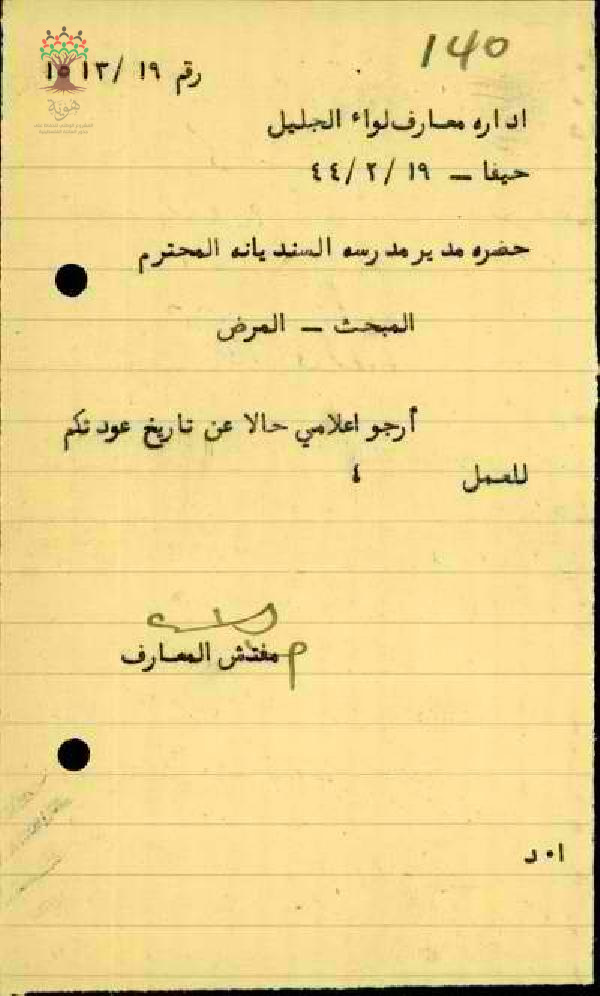 140
رقم ١٩/ ١٥١٣
هوية
اداره معارف لواء الجليل
حيفا – ١٩/٢/٤٤
حضره مدير مدرسه السنديانه المحترم
المبحث – المرض
أرجو اعلامي حالا عن تاريخ عودتكم
للعمل ٤
مفتش المعارف
ا٠د